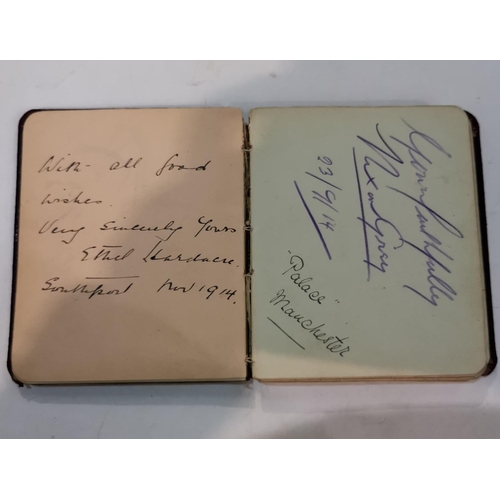 With all good
wishes.
Very Sincerely Yours
Ethel Hardacre.
Southport Nov 1914.
Yours faithfully
Nixon Grey
23/9/14
"Palace"
Manchester